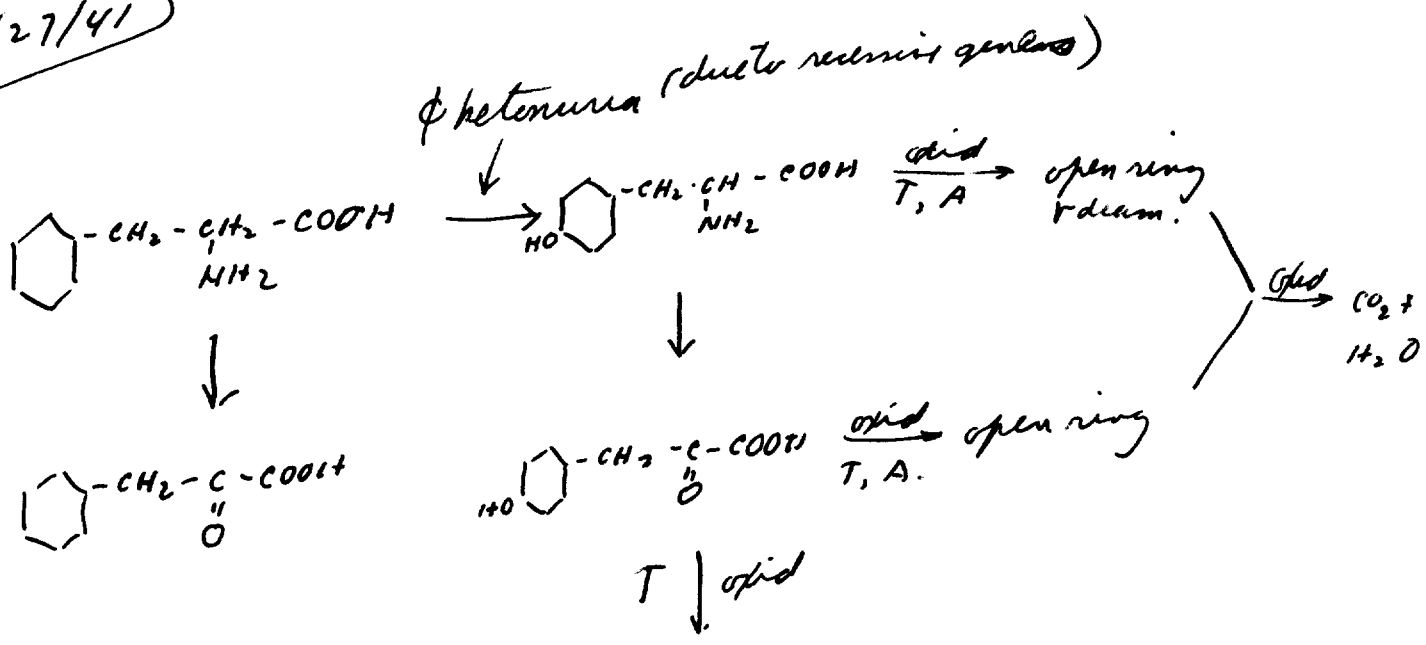 27/41
ϕ ketonuria (due to recessive genes)
-CH2-CH2-COOH
NH2
HO
-CH2·CH-COOH
NH2
oxid
T, A
open ring
+ deam.
oxid
CO2 +
H2O
-CH2-C-COOH
O
HO
-CH2-C-COOH
O
oxid
T, A.
open ring
T
oxid